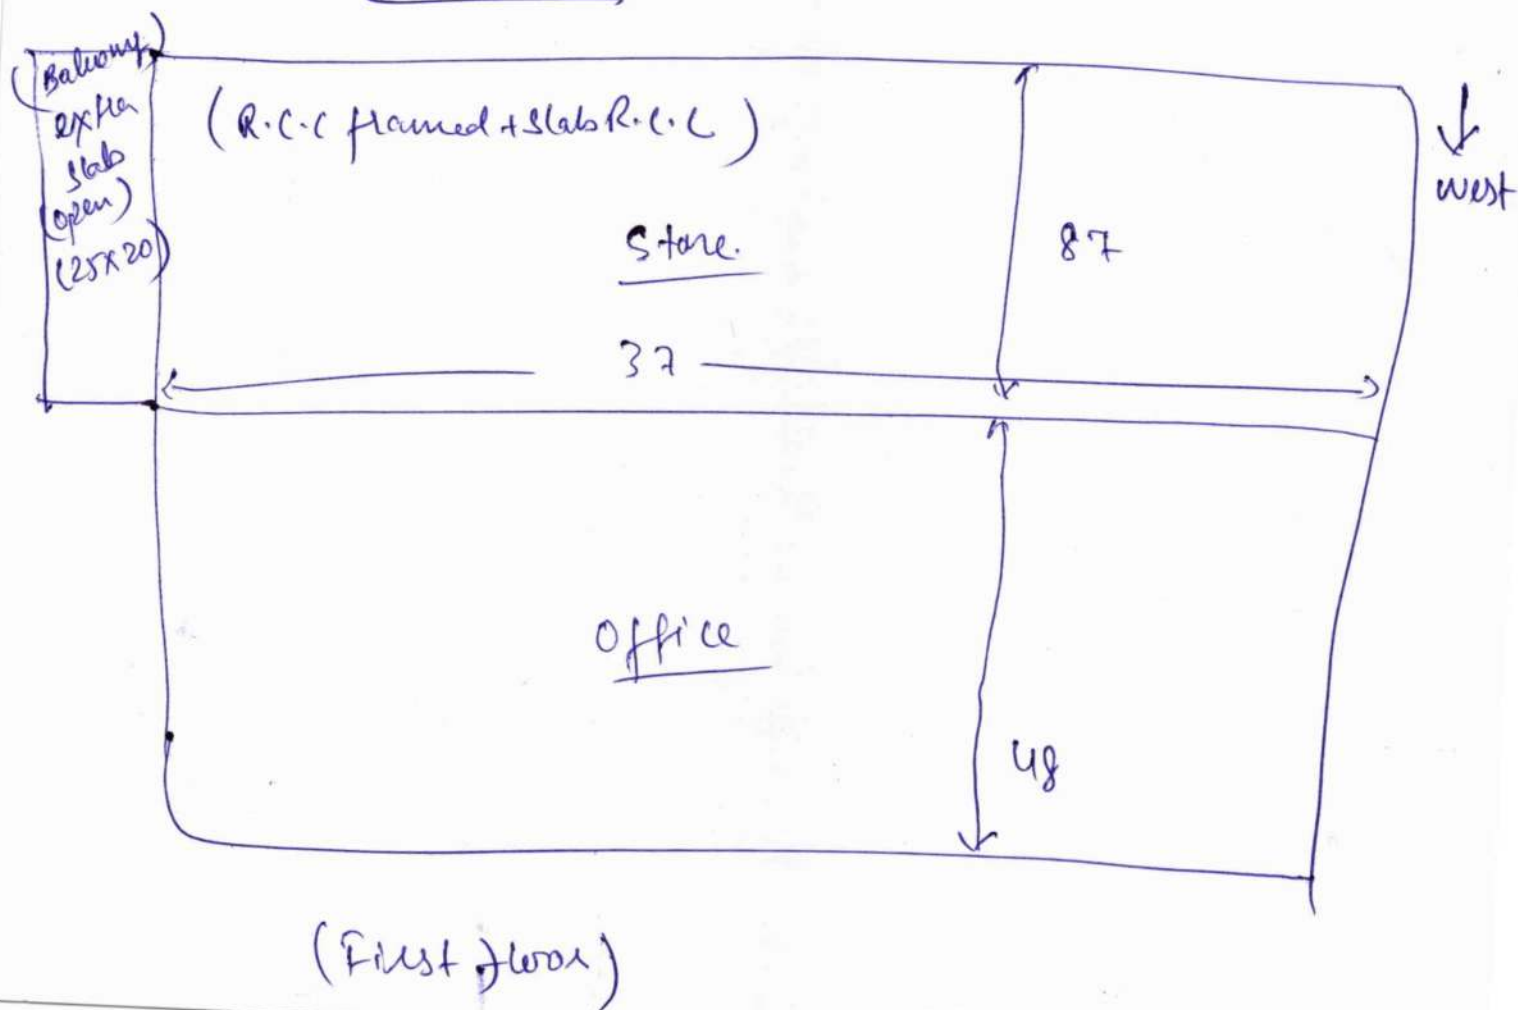 (Balcony)
extra
slab
(open)
(25x20)
(R.C.C framed + Slab R.C.C)
West
Store.
87
37
Office
48
(First floor)